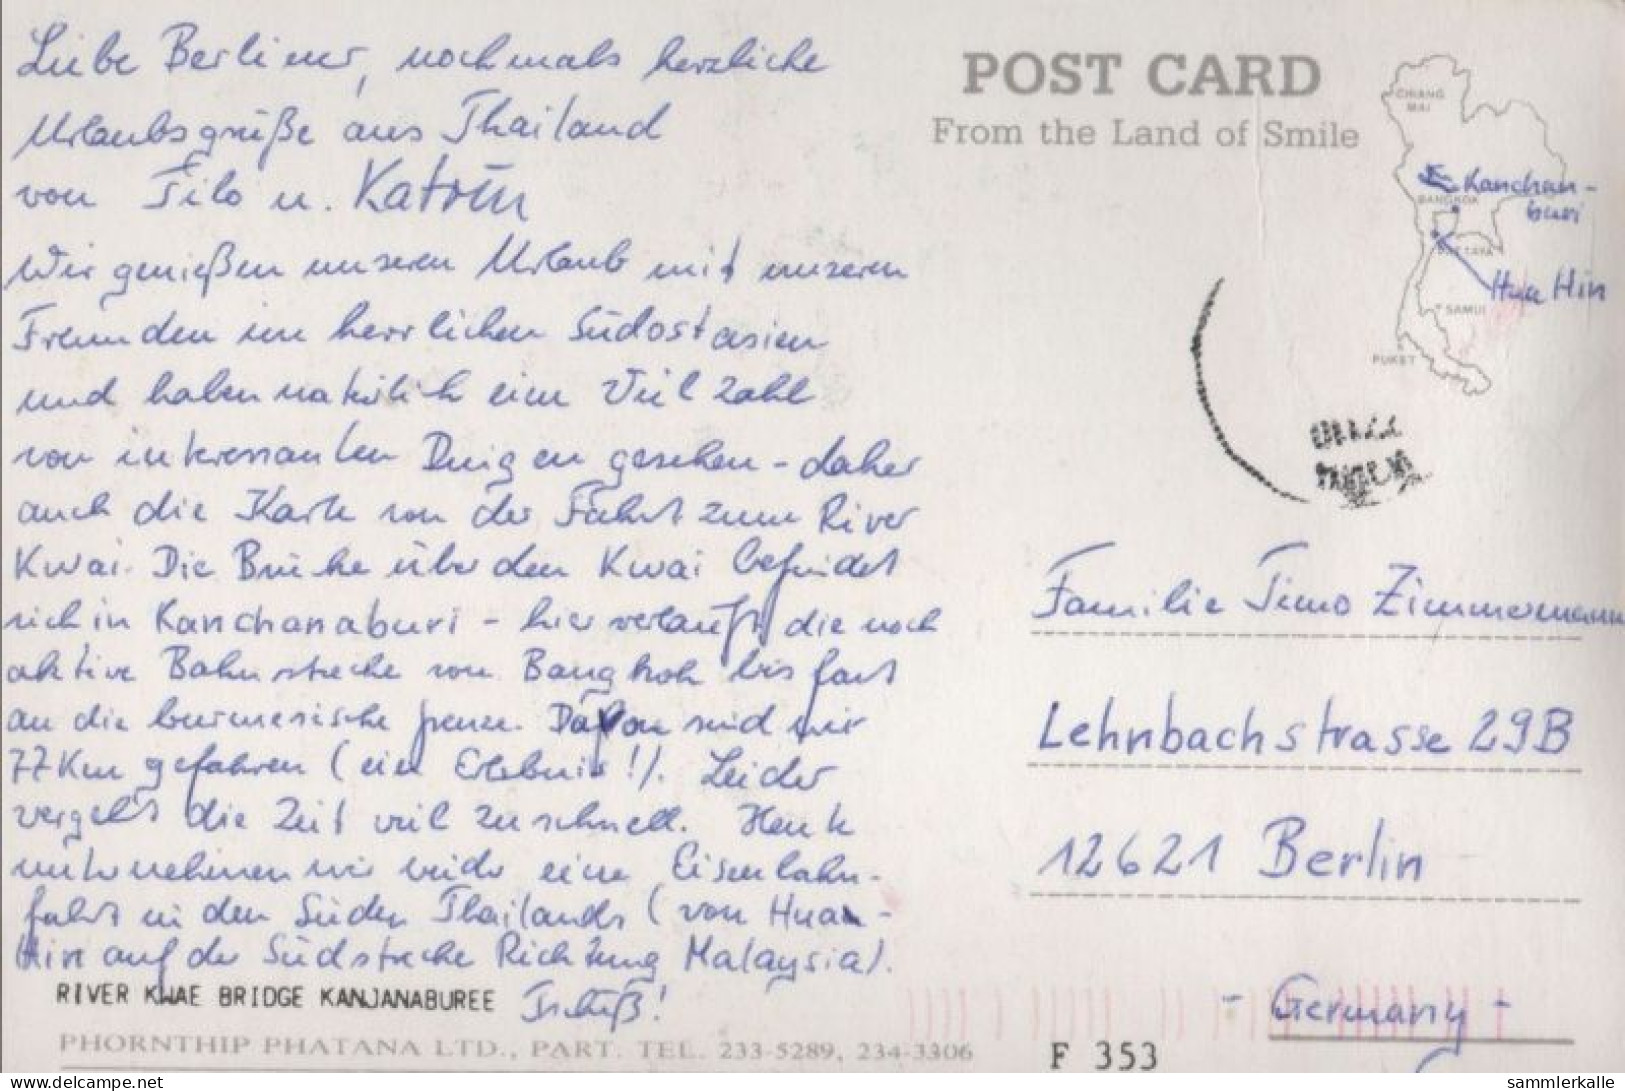 Liebe Berliner, nochmals herzliche
Urlaubsgrüße aus Thailand
von Tilo u. Katrin
Wir genießen unseren Urlaub mit unseren
Freunden im herrlichen Südostasien
und haben natürlich eine Vielzahl
von interessanten Dingen gesehen - daher
auch die Karte von der Fahrt zum River
Kwai. Die Brücke über den Kwai befindet
sich in Kanchanaburi - hier verläuft die noch
aktive Bahnstrecke von Bangkok bis fast
an die burmesische Grenze. Davon sind wir
77 Km gefahren (ein Erlebnis!). Leider
vergeht die Zeit viel zu schnell. Heute
unternehmen wir wieder eine Eisenbahn-
fahrt in den Süden Thailands (von Hua-
Hin auf der Südstrecke Richtung Malaysia).
Tschüß!
RIVER KWAE BRIDGE KANJANABUREE
PHORNTHIP PHATANA LTD., PART. TEL. 233-5289, 234-3306
F 353
POST CARD
From the Land of Smile
CHIANG
MAI
Kanchan-
buri
BANGKOK
PATTAYA
Hua Hin
SAMUI
PUKET
Familie Timo Zimmermann
Lehnbachstrasse 29B
12621 Berlin
- Germany -
www.delcampe.net
sammlerkalle